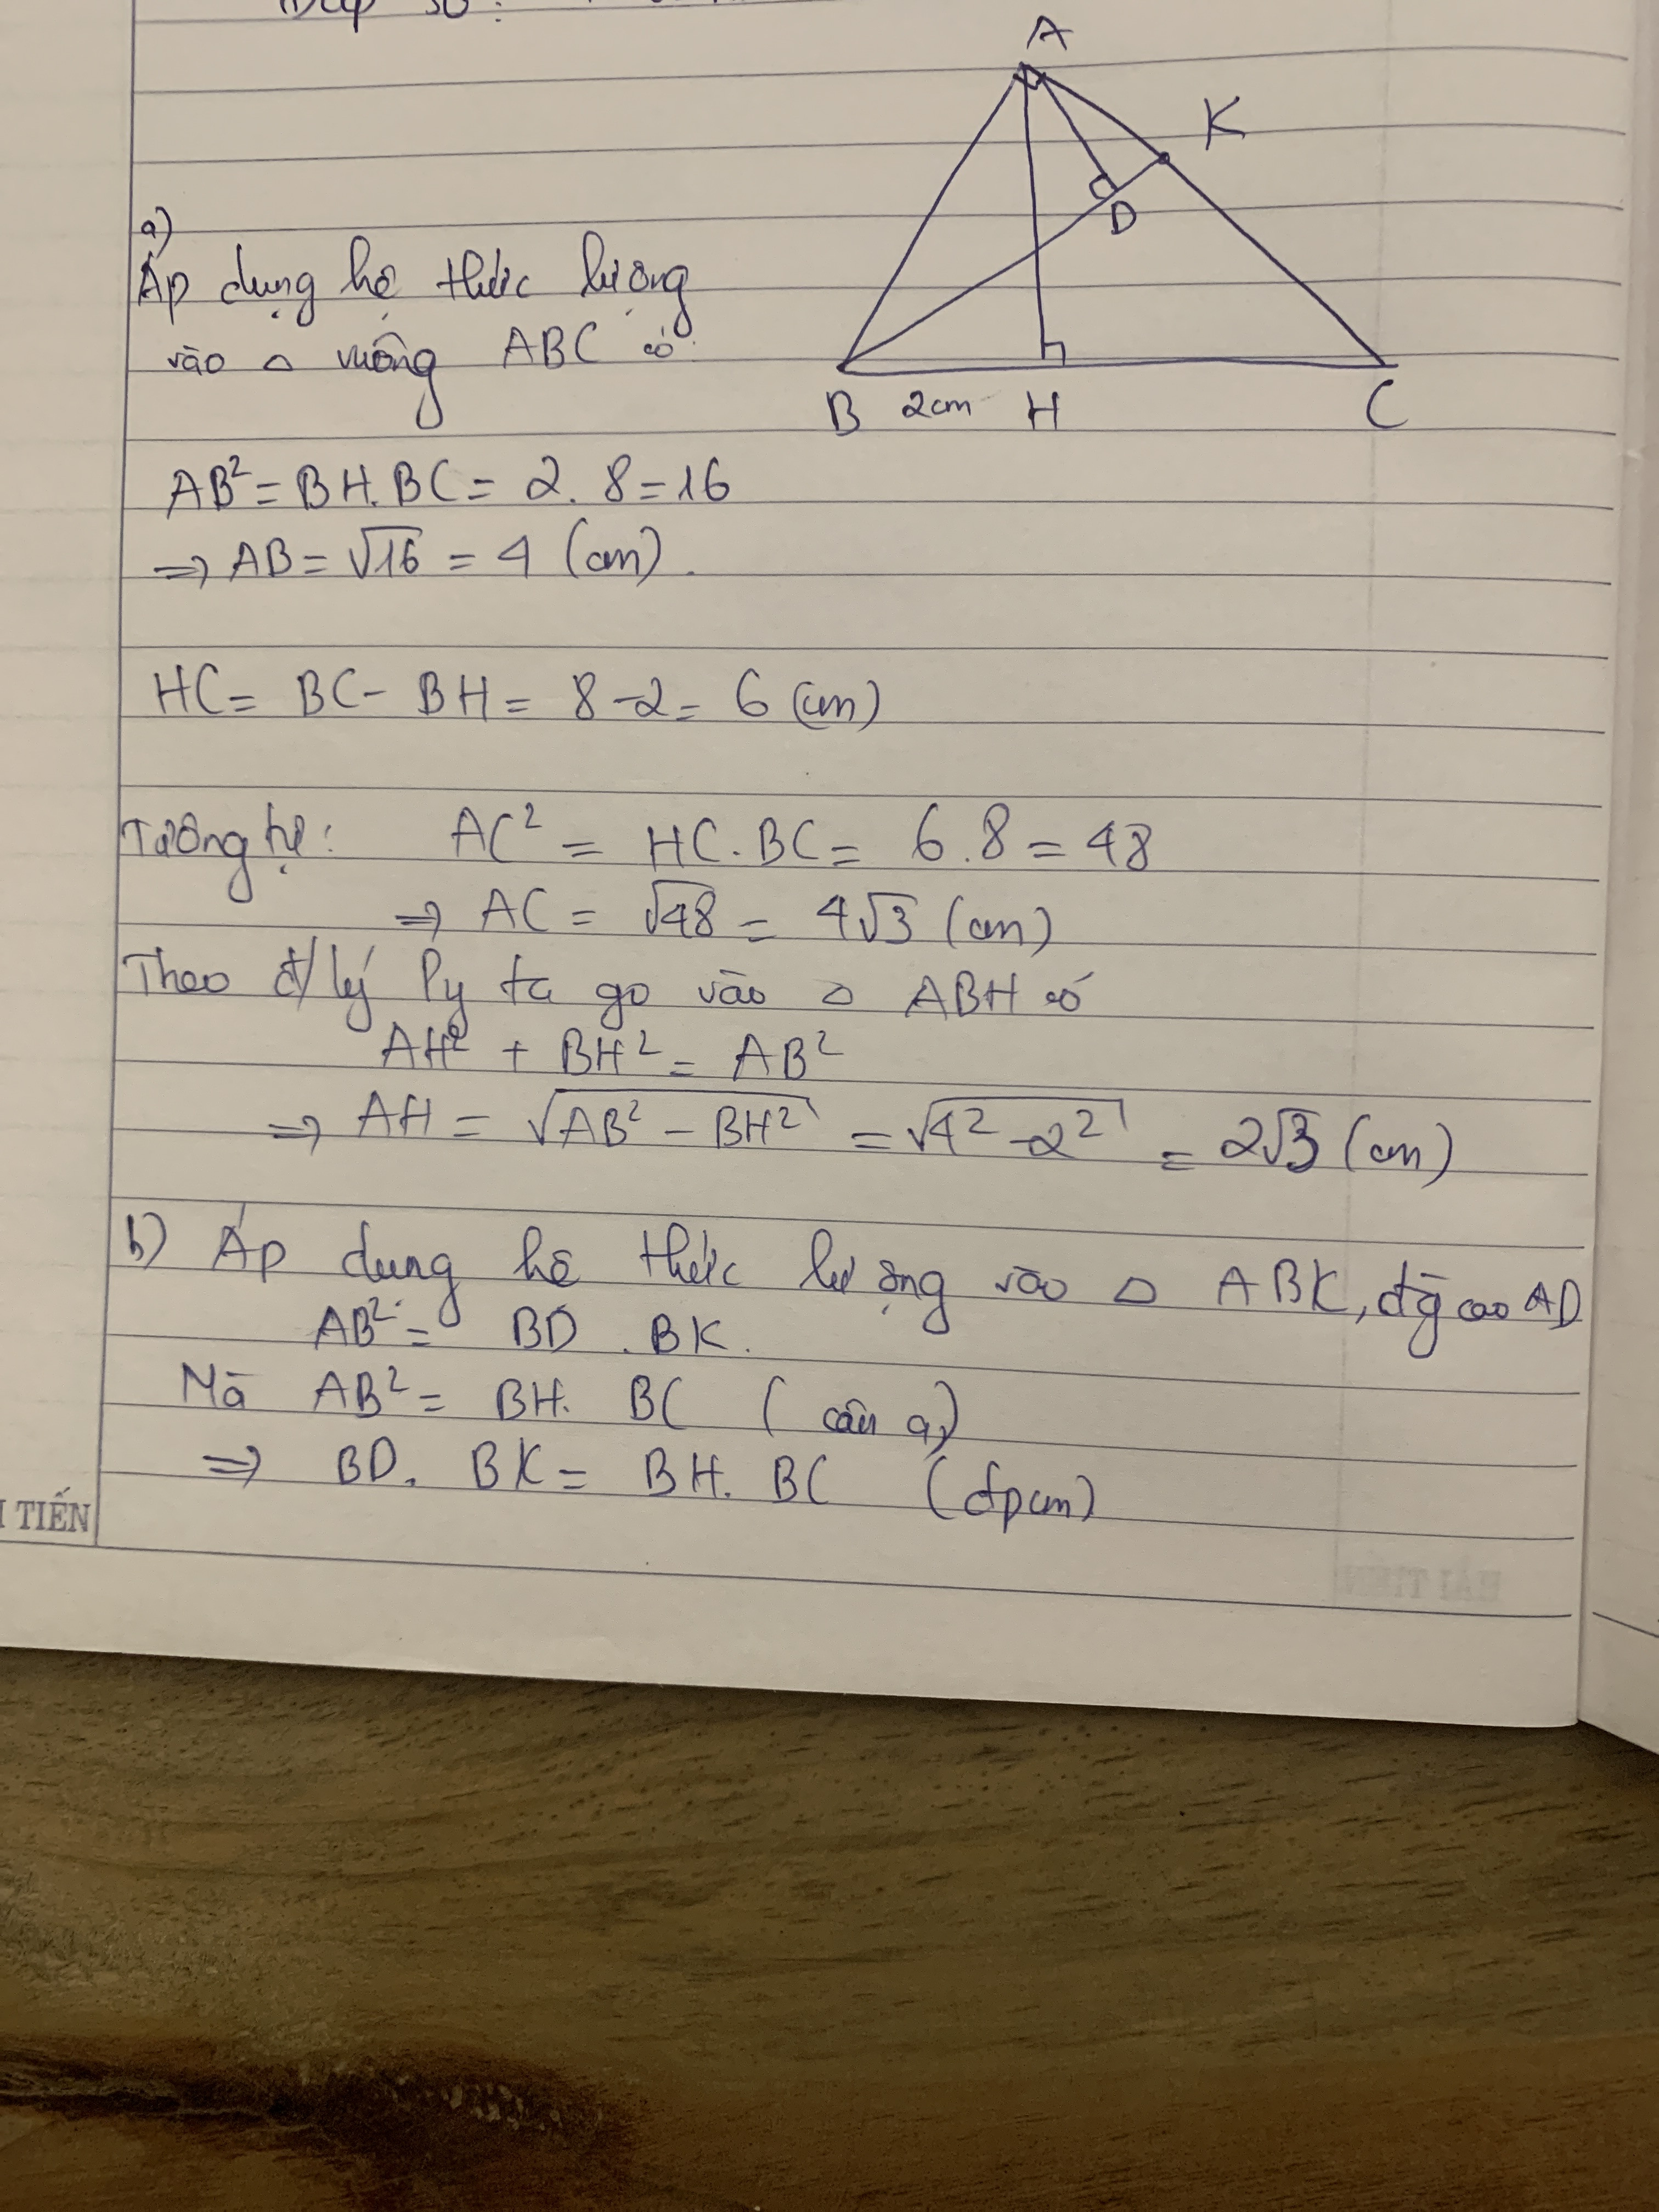 Đáp số:
A
K
D
B 2cm H C
a)
Áp dụng hệ thức lượng
vào △ vuông ABC có:
AB² = BH. BC = 2. 8 = 16
⇒ AB = √16 = 4 (cm).
HC = BC - BH = 8 - 2 = 6 (cm)
Tương tự: AC² = HC. BC = 6.8 = 48
⇒ AC = √48 = 4√3 (cm)
Theo đ/lý Py ta go vào △ ABH có
AH² + BH² = AB²
⇒ AH = √(AB² - BH²) = √(4² - 2²) = 2√3 (cm)
b) Áp dụng hệ thức lượng vào △ ABK, đg cao AD
AB² = BD . BK.
Mà AB² = BH. BC (câu a)
⇒ BD. BK = BH. BC (đpcm)
TIẾN
HẢI TIẾN